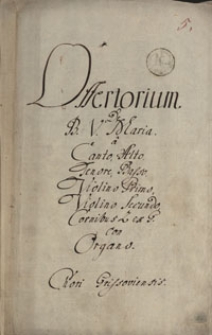 5.
Offertorium.
de
B. V. Maria.
à
Canto, Alto
Tenore, Basso,
Violino Primo,
Violino Secundo,
Cornibus 2 ex F.
con
Organo.
Chori Grissoviensis.